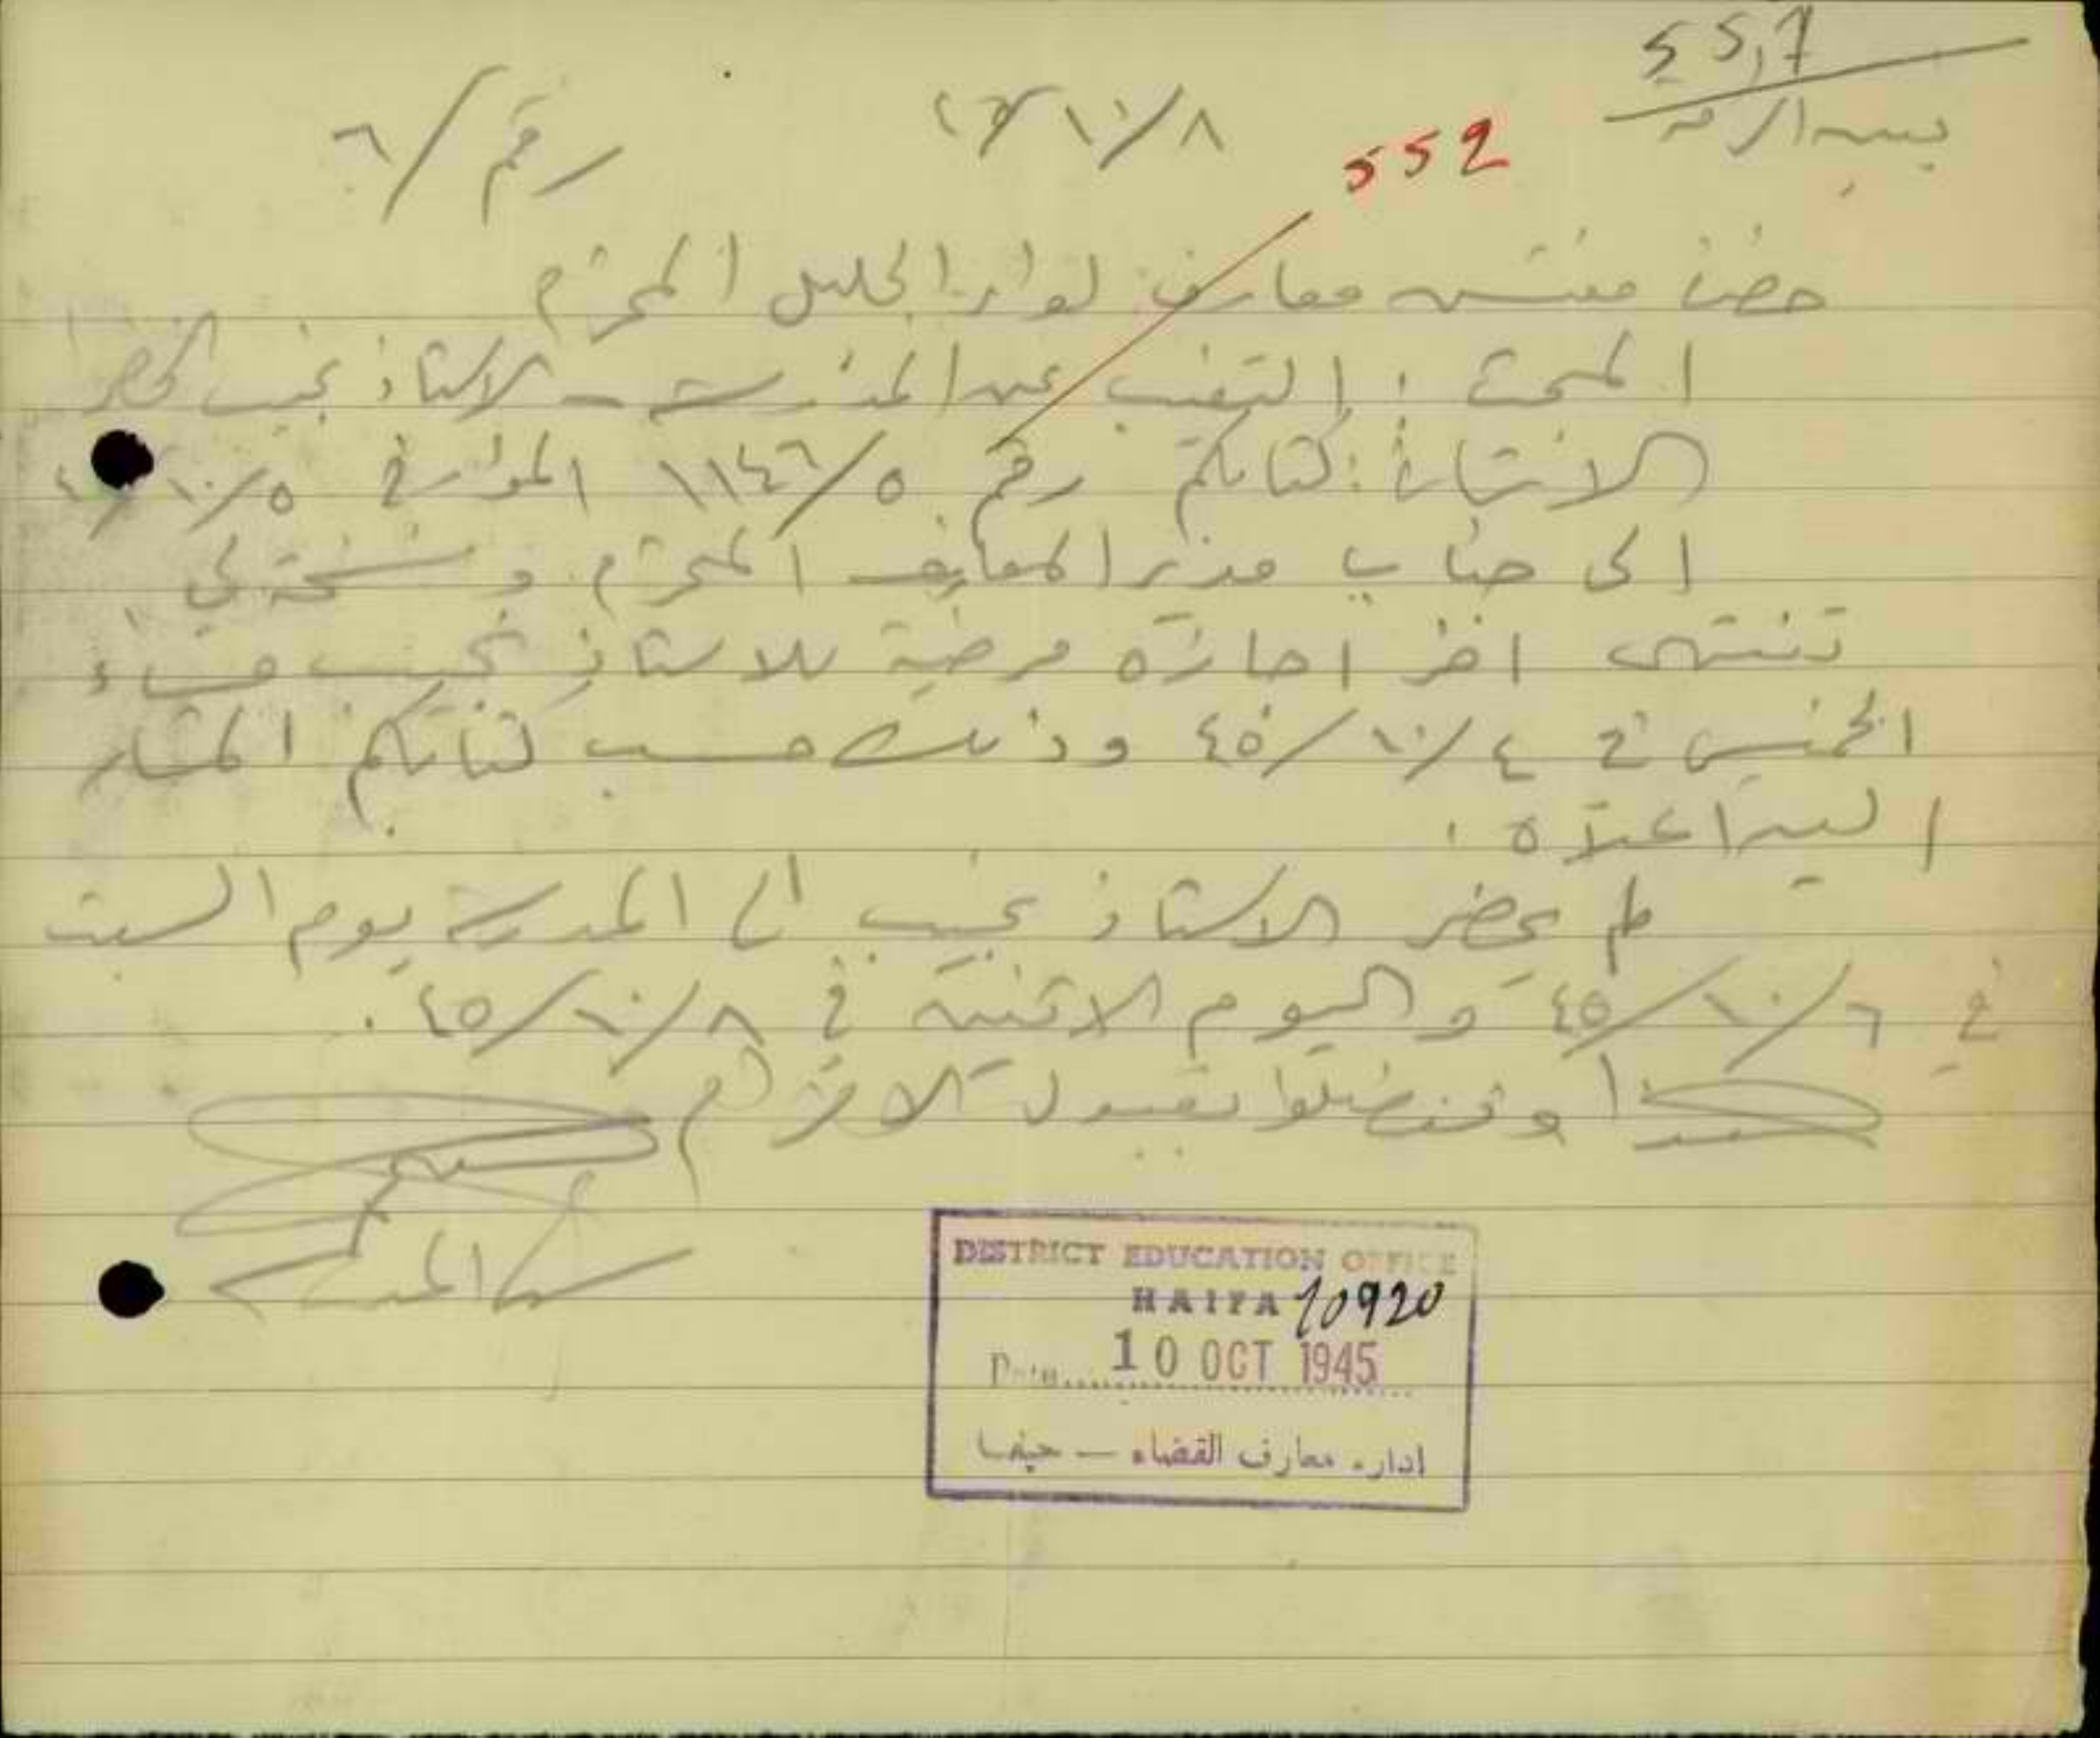 55,7
552
رقم /٦
٤٥/١٠/٨
حضرة مفتش معارف لواء الجليل المحترم
المبحث : التغيب عن المدرسة - الاستاذ نجيب
الاشارة : كتابكم رقم ١١٤٦/٥ المؤرخ ١٠/٥
الى جناب مدير المعارف المحترم ونسخة لي
تنتهي اخر اجازة مرضية للاستاذ نجيب مساء
الخميس في ٤٥/١٠/٤ وذلك حسب كتابكم المشار
اليه اعلاه .
لم يحضر الاستاذ نجيب الى المدرسة يوم السبت
في ٤٥/١٠/٦ واليوم الاثنين في ٤٥/١٠/٨ .
هذا وتفضلوا بقبول الاحترام
DISTRICT EDUCATION OFFICE
HAIFA 10920
Date 10 OCT 1945
ادارة معارف القضاء — حيفا